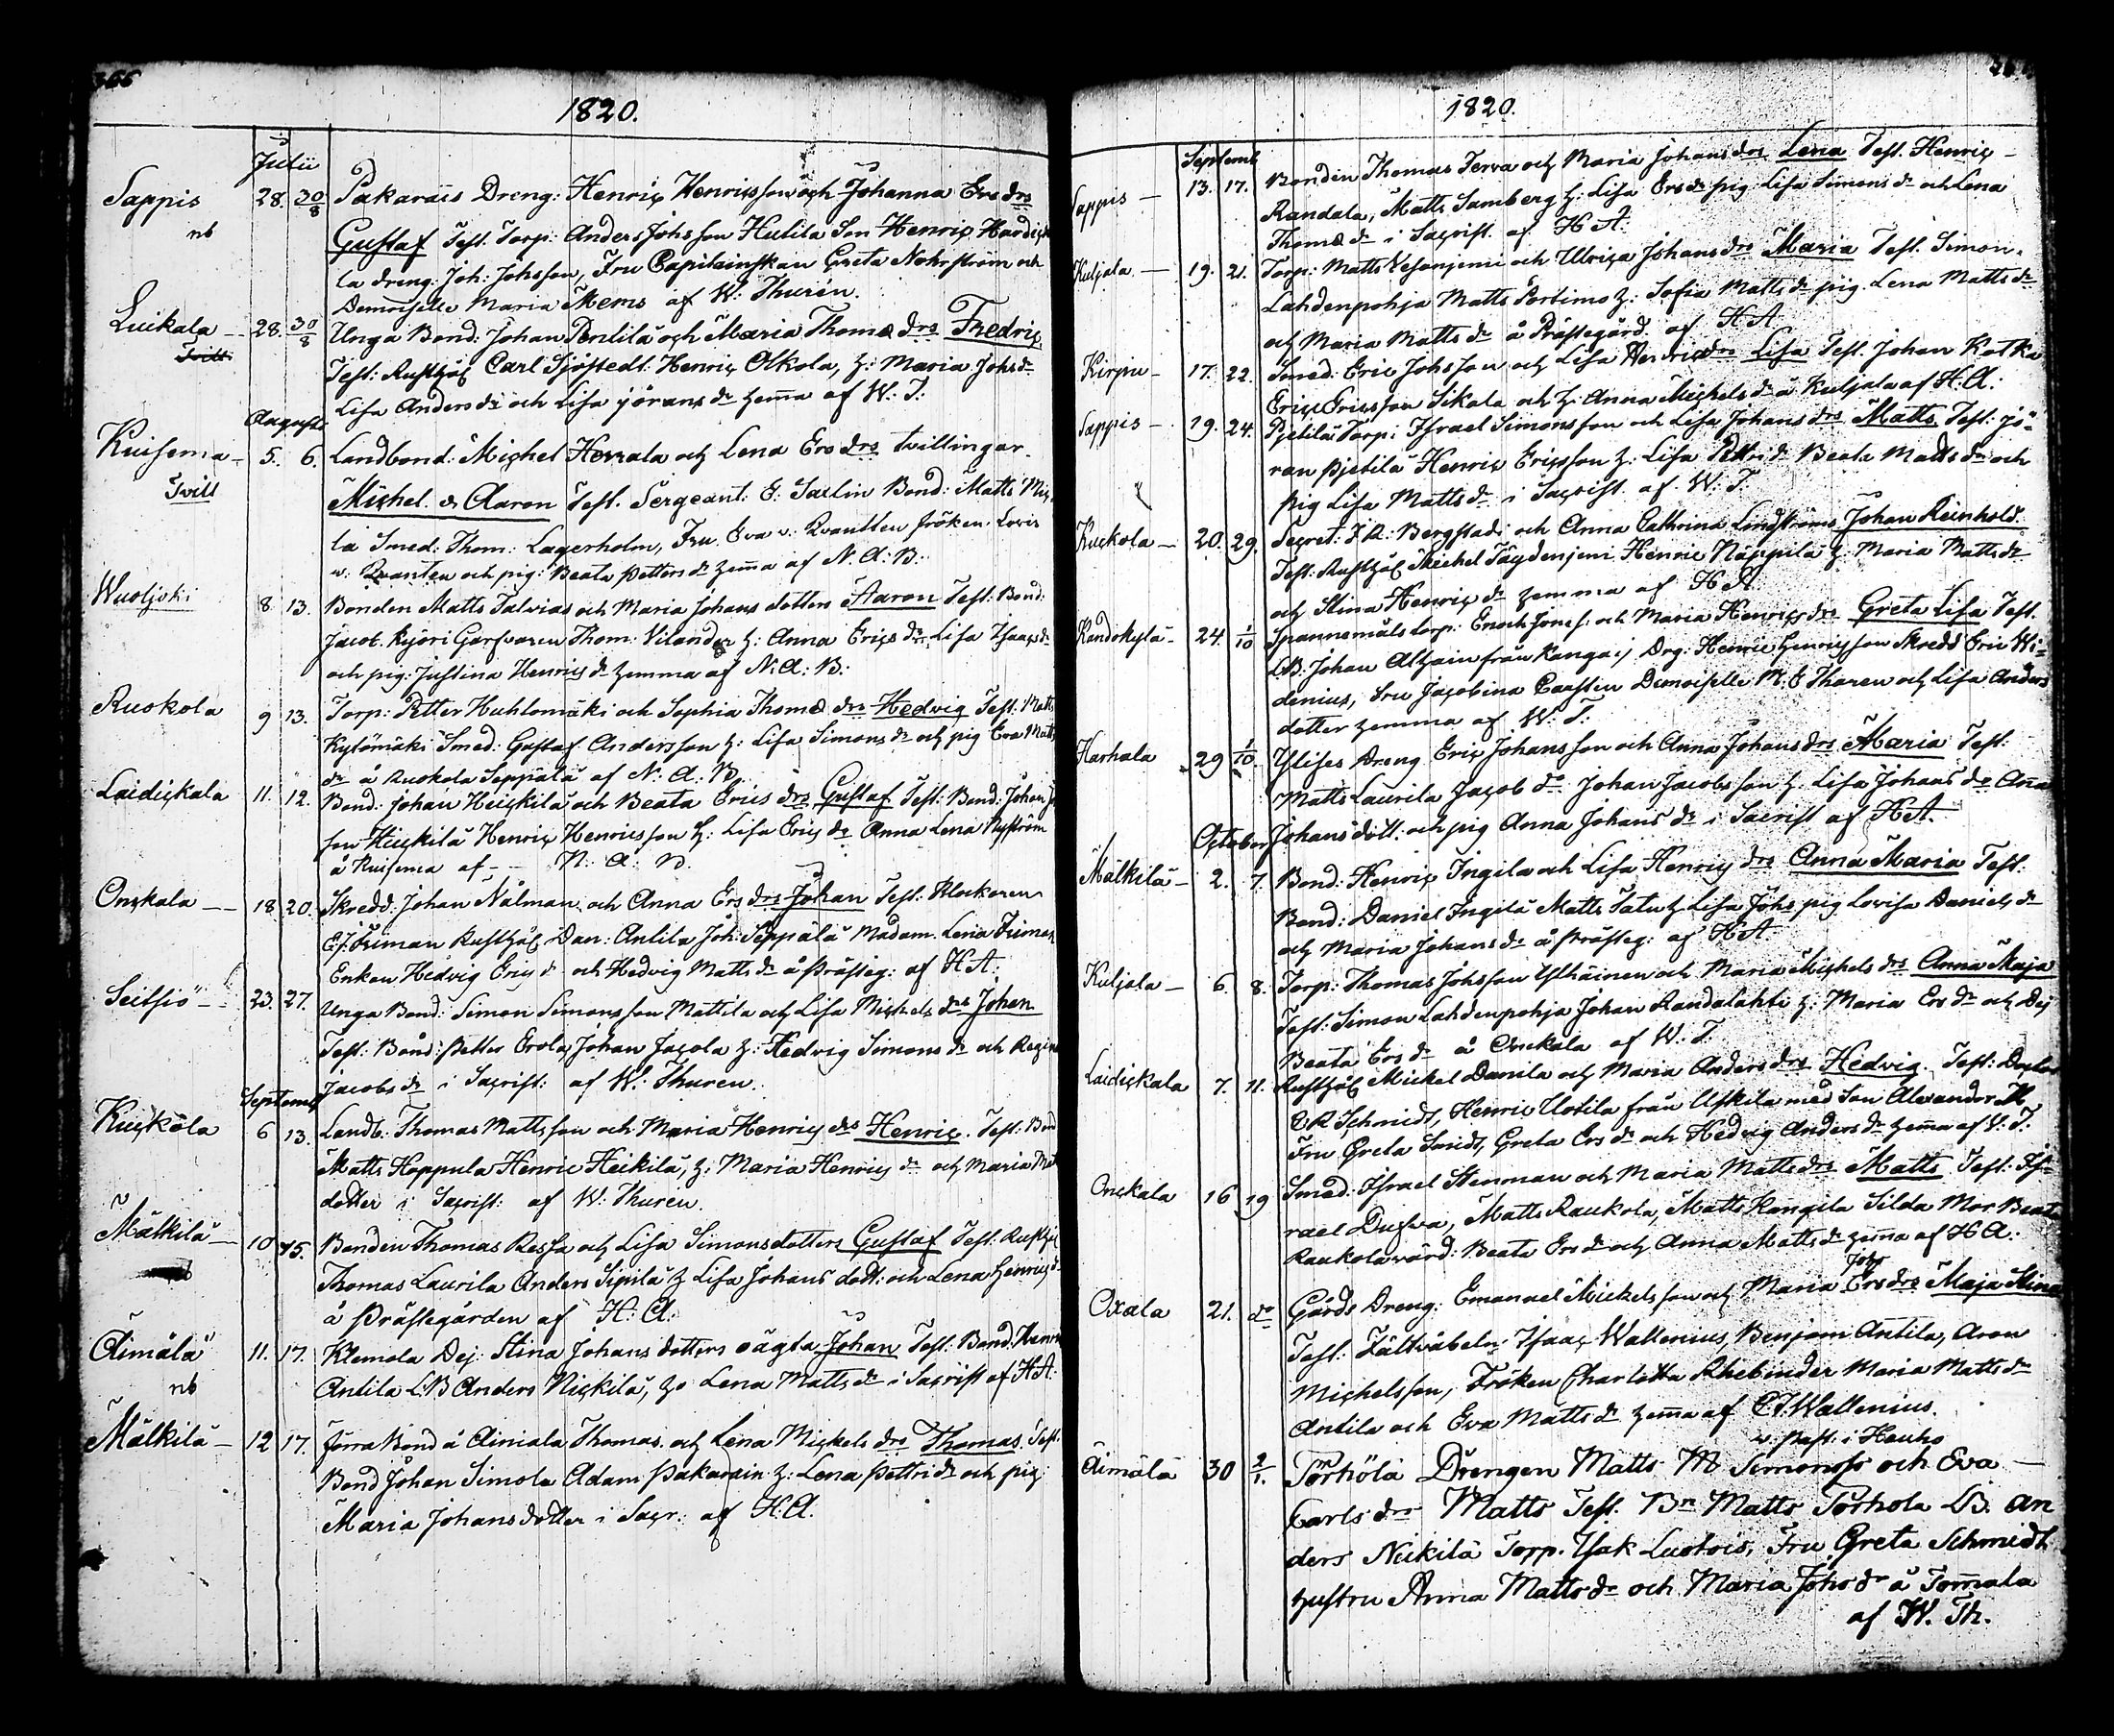 366
1820.
Julii
Sappis 28. 30/8 Pakarais Dreng: Henric Henricsson och Johanna Ers drs
nb Gustaf Test. Torp: Anders Johsson Hulila Son Henric
la dreng: Joh: Johsson, Fru Capitainskan Greta Nohrström och
Demoiselle Maria Mems af W: Thurén.
Luikala 28. 30/8 Unga Bond: Johan Pentilä och Maria Thomæ drs Fredric
Test: Rusthål Carl Sjöstedt. Henric Olkola, h: Maria Johsdr
Lisa Anders dr och Lisa Jörans dr hema af W: T:
Augusti
Kuisema 5. 6. Landbond: Michel Herrala och Lena Ers drs tvillingar
Tvill Michel & Aaron Test. Sergeant: E: Saxlin Bond: Matts Mic
la Smed: Thom: Lagerholm, Fru Eva v: Qvantten fröken Lovis
v: Qvanten och pig: Beata Petters dr hema af N. A: B:
Wuoljoki 8 13. Bonden Matts Talvias och Maria Johans dotters Aaron Test: Bond:
Jacob Kyöri Garfvaren Thom: Vilander h: Anna Erics dr Lisa Isaacs dr
och pig: Justina Henrics dr hemma af N: A: B:
Ruokola 9 13. Torp: Petter Huhlomäki och Sophia Thomæ drs Hedvig Test: Matts
Kylömäki Smed: Gustaf Andersson h: Lisa Simons dr och pig Eva Matts
dr å Ruokola Seppälä af N: A: B.
Laidickala 11. 12. Bond: Johan Heickilä och Beata Erics drs Gustaf Test: Bond: Johan Jo
son Heickilä Henric Henricsson h: Lisa Erics dr Anna Lena Nyström
å Kuisema af N: A: B.
Onckala 18 20. Skredd: Johan Nålman och Anna Ers drs Johan Test: Klockaren
E:J: Friman Rusthål Dan: Antila Joh: Seppälä Madam Lena Friman
Enkan Hedvig Erics dr och Hedvig Matts dr å Prästeg: af H A:
Seitsiö 23. 27. Unga Bond: Simon Simonsson Mattila och Lisa Michels drs Johan
Test: Bond: Petter Erola, Johan Jacola h: Hedvig Simons dr och Regina
Jacobs dr i Sacrist: af W: Thuren.
Septemb
Kuckola 6 13. Landb: Thomas Mattsson och Maria Henrics drs Henric. Test: Bond
Matts Hoppula Henric Heikilä, h: Maria Henrics dr och Maria Mat
dotter i Sacrist: af W: Thuren.
Mälkilä 10 15. Bonden Thomas Ressa och Lisa Simonsdotters Gustaf Test: Rusthål
Thomas Laurila Anders Sipilä h Lisa Johans dott: och Lena Henrics dr
å Prästegården af H: A:
Äimälä 11. 17. Klemola Dej: Stina Johans dotters oägta Johan Test: Bond: Henric
nb Antila L:B Anders Nickilä, ho Lena Matts dr i Sacrist af H A:
Mälkilä 12 17. Jorra Bond å Äimälä Thomas och Lena Michels drs Thomas. Test.
Bond Johan Simola Adam Pakarain h: Lena Petters dr och pig
Maria Johansdotter i Sacr: af H:A.
1820.
Septemb
Sappis 13. 17. Bonden Thomas Terva och Maria Johans drs Lena Test. Henric
Randala, Matts Samberg h: Lisa Ers dr pig Lisa Simons dr och Lena
Thomæ dr i Sacrist. af H A:
Kuljala 19. 21. Torp: Matts Vesanjemi och Ulrica Johans drs Maria Test. Simon
Lahdenpohja Matts Portimo h: Sofia Matts dr pig Lena Matts dr
och Maria Matts dr å Prästegård af H A
Kirpiu 17. 22. Smed: Eric Johsson och Lisa Henrics drs Lisa Test. Johan Kotka
Eric Ericsson Sikala och h: Anna Michels dr å Kuljala af H. A:
Sappis 19. 24. Pjetilä Torp: Israel Simonsson och Lisa Johans drs Matts. Test: Jö
ran Pjetilä Henric Ericsson h: Lisa Petters dr Beata Matts dr och
pig Lisa Matts dr i Sacrist. af W: T:
Kuckola 20. 29. Secret: J R: Bergstadi och Anna Cathrina Landströms Johan Reinhold
Test: Rusthål Michel Täydenjemi Henric Näppilä h: Maria Matts dr
och Stina Henrics dr hemma af H A:
Kandokylä 24 1/10 Spannemåls torp: Enoch Jones: och Maria Henrics drs Greta Lisa Test.
L:B: Johan Alhain från Kanga: / Drg: Henric Henricsson Skredd Eric Wi-
denius, Fru Jacobina Demoiselle M: E Thuren och Lisa Anders
dotter hemma af W: T:
Harhala 29 1/10 Ylises Dreng Eric Johansson och Anna Johans drs Maria Test:
Matts Laurila Jacob do Johan Jacobsson h. Lisa Johans dr Anna
Johans dott. och pig Anna Johans dr i Sacrist af H A.
October
Mälkilä 2. 7. Bond: Henric Ingila och Lisa Henrics drs Anna Maria Test:
Bond: Daniel Ingilä Matts Tatu h Lisa Johs pig Lovisa Daniels dr
och Maria Johans dr å Prästeg: af H A
Kuljala 6. 8. Torp: Thomas Johsson Ylhäinen och Maria Michels drs Anna Maja
Test: Simon Lahdenpohja Johan Randalahti h: Maria Ers dr och Dej
Beata Ers dr å Onckala af W: T:
Laidickala 7. 11. Rusthål Mickel Danila och Maria Anders drs Hedvig. Test:
C R Schmidt, Henric Uotila från Uskila med Son Alexander H,
Fru Greta Smidt, Greta Ers dr och Hedvig Anders dr hema af W: T:
Onckala 16 19 Smed: Israel Stenman och Maria Matts drs Matts Test: Is
rael Dufva, Matts Raukola, Matts Kangila Silda Mor Beata
Raukola värd: Beata Ers dr och Anna Matts dr hema af H A:
Johs
Oxala 21. do Gårds Dreng: Emanuel Mickelsson och Maria Ers drs Maja Stina
Test: Fältväbeln Isaac Wallenius, Benjam Antila, Aron
Michelsson, Fröken Charlotta Rhebinder Maria Matts dr
Antila och Eva Matts dr hema af C J Wallenius.
v. Past: i Hauho
Äimälä 30 2/1. Törhölä Drengen Matts M Simonss och Eva
Carls drs Matts Test. Bn Matts Törhola LB. An
ders Nickilä Torp. Isak Luotois, Fru Greta Schmidt
hustru Anna Matts dr och Maria Johs dr å Tomala
af W. Th.